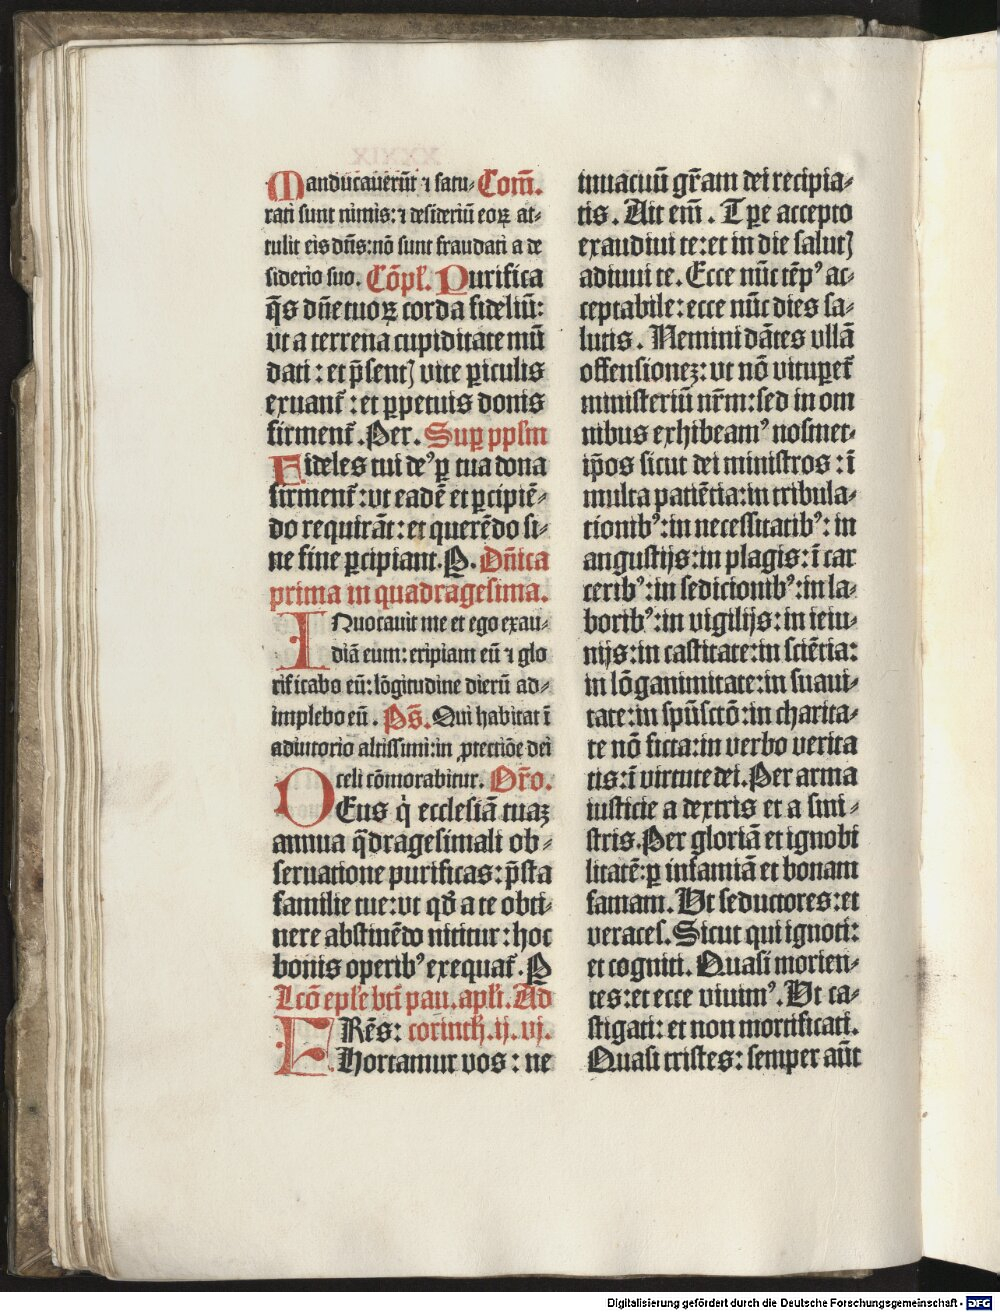 Manducauerūt ⁊ satu- Com̄.
rati sunt nimis: ⁊ desideriū eoꝝ at-
tulit eis dn̄s: nō sunt fraudati a de
siderio suo. Cōpl̄. Purifica
q̄s dn̄e tuoꝝ corda fideliū:
vt a terrena cupiditate mū
dati: et p̄sentꝭ vite ꝑiculis
exuant᷑: et ꝑpetuis donis
firment᷑. Per. Suꝑ ppl̄m
Fideles tui deꝰ ꝑ tua dona
firment᷑: vt eadē et ꝑcipiē-
do requirāt: et querēdo si-
ne fine ꝑcipiant. P. Dn̄ica
prima in quadragesima.
INuocauit me et ego exau-
diā eum: eripiam eū ⁊ glo
rificabo eū: lōgitudine dierū ad-
implebo eū. Ps̄. Qui habitat ī
adiutorio altissimi: in ꝓtectiōe dei
celi cōmorabitur. Or̄o.
DEus q̇ ecclesiā tuaꝫ
annua q̄dragesimali ob-
seruatione purificas: p̄sta
familie tue: vt qd̄ a te obti-
nere abstinēdo nititur: hoc
bonis operibꝰ exequat᷑. P
Lcō ep̄le bt̄i pau. apl̄i. Ad
FRēs: corinth. ij. vj.
Hortamur vos: ne
inuacuū gr̄am dei recipia-
tis. Ait em̄. Tꝑe accepto
exaudiui te: et in die salutꝭ
adiuui te. Ecce nūc tēpꝰ ac-
ceptabile: ecce nūc dies sa-
lutis. Nemini dātes vllā
offensionez: vt nō vituꝑet᷑
ministeriū nr̄m: sed in om
nibus exhibeamꝰ nosmet-
ip̄os sicut dei ministros: ī
multa patiētia: in tribula-
tionibꝰ: in necessitatibꝰ: in
angustijs: in plagis: ī car
ceribꝰ: in sedicionibꝰ: in la-
boribꝰ: in vigilijs: in ieiu-
nijs: in castitate: in sciētia:
in lōganimitate: in suaui-
tate: in spū sctō: in charita-
te nō ficta: in verbo verita
tis: ī virtute dei. Per arma
iusticie a dextris et a sini-
stris. Per gloriā et ignobi
litatē: ꝑ infamiā et bonam
famam. Vt seductores: et
veraces. Sicut qui ignoti:
et cogniti. Quasi morien-
tes: et ecce viuimꝰ. Vt ca-
stigati: et non mortificati.
Quasi tristes: semper aūt
Digitalisierung gefördert durch die Deutsche Forschungsgemeinschaft - DFG